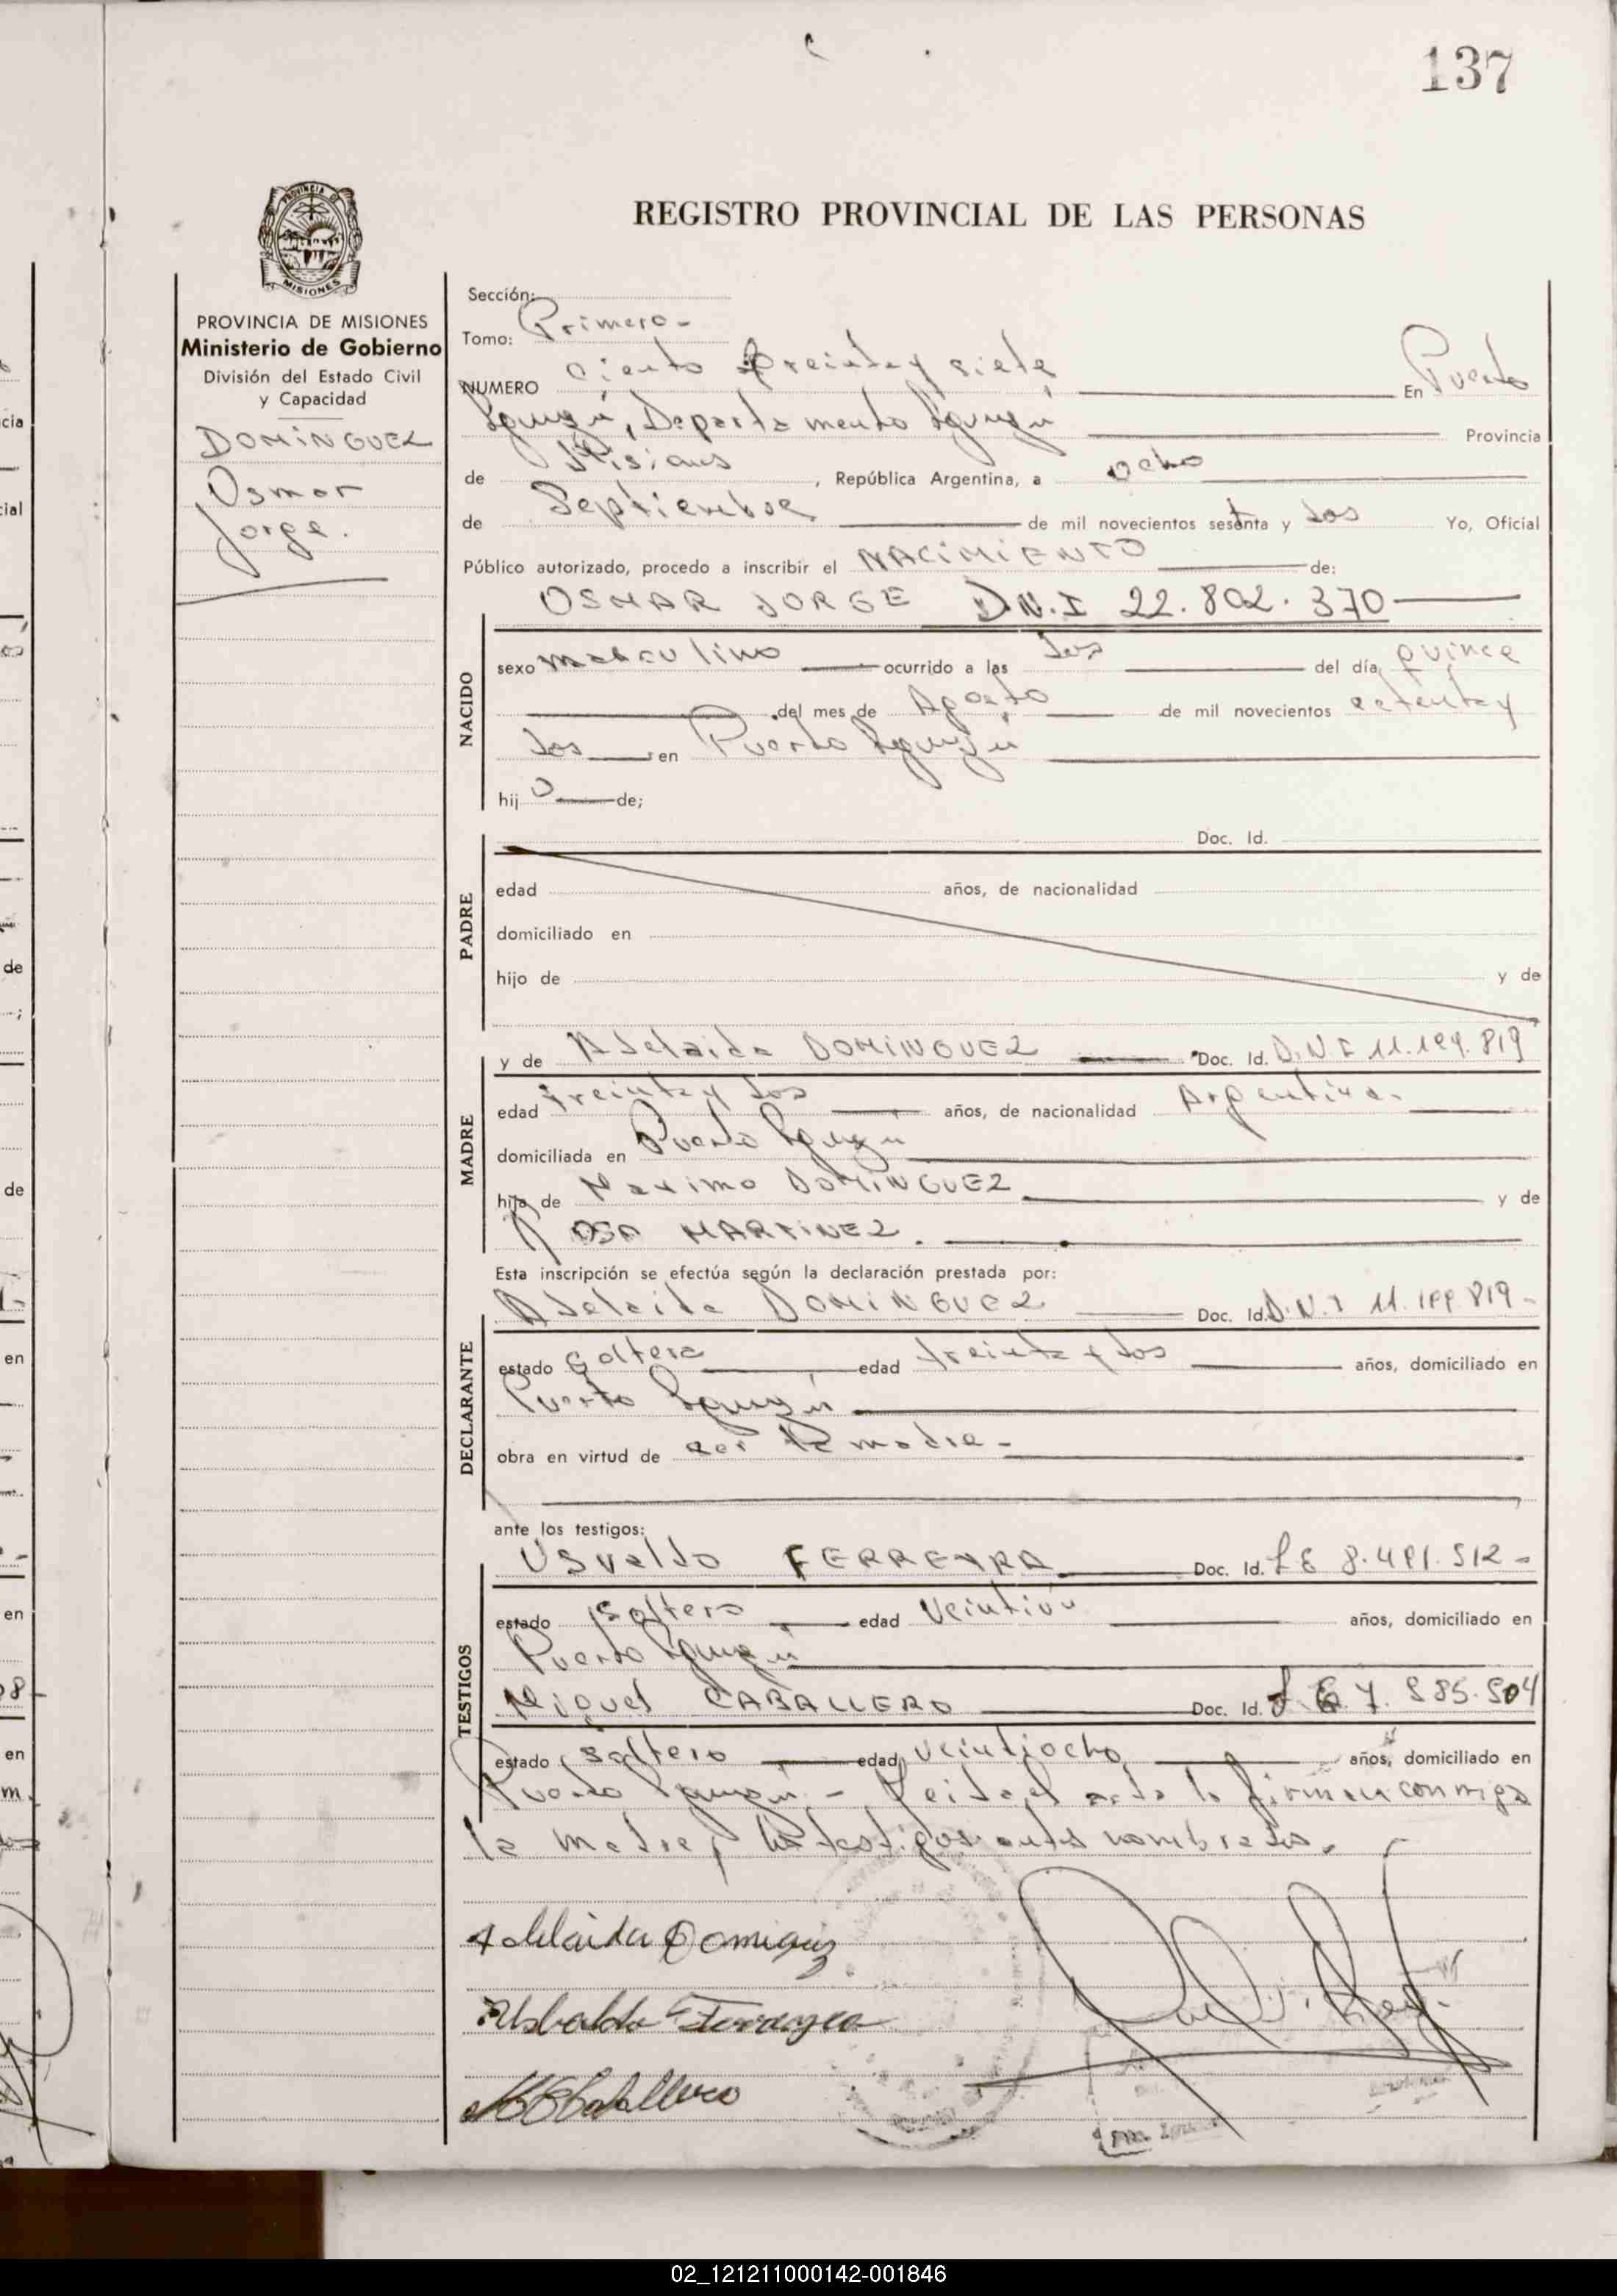 137
REGISTRO PROVINCIAL DE LAS PERSONAS
PROVINCIA DE
MISIONES
PROVINCIA DE MISIONES
Ministerio de Gobierno
División del Estado Civil
y Capacidad
DOMINGUEZ
Osmar
Jorge.
Sección:
Tomo: Primero-
NUMERO ciento treinta y siete En Puerto
Iguazú, Departamento Iguazú Provincia
de Misiones, República Argentina, a ocho
de Septiembre de mil novecientos setenta y dos Yo, Oficial
Público autorizado, procedo a inscribir el NACIMIENTO de:
OSMAR JORGE D.N.I 22.802.370
NACIDO
sexo masculino ocurrido a las dos del día quince
del mes de Agosto de mil novecientos setenta y
dos en Puerto Iguazú
hijo de;
PADRE
Doc. Id.
edad años, de nacionalidad
domiciliado en
hijo de y de
MADRE
y de Adelaida DOMINGUEZ Doc. Id. D.N.I 11.199.819
edad treinta y dos años, de nacionalidad Argentina.
domiciliada en Puerto Iguazú
hija de Maximo DOMINGUEZ y de
ROSA MARTINEZ.
Esta inscripción se efectúa según la declaración prestada por:
DECLARANTE
Adelaida DOMINGUEZ Doc. Id. D.N.I 11.199.819-
estado soltera edad treinta y dos años, domiciliado en
Puerto Iguazú
obra en virtud de ser la madre-
ante los testigos:
TESTIGOS
Usvaldo FERREYRA Doc. Id. LE 8.491.512-
estado soltero edad años, domiciliado en
Puerto Iguazú
Miguel CABALLERO Doc. Id. L.E 7.585.504
estado soltero edad veintiocho años, domiciliado en
Puerto Iguazú - Leida el acta la firman conmigo
la madre y los testigos antes nombrados.
Adelaida Dominguez
Usbaldo Ferreyra
Caballero
02_121211000142-001846